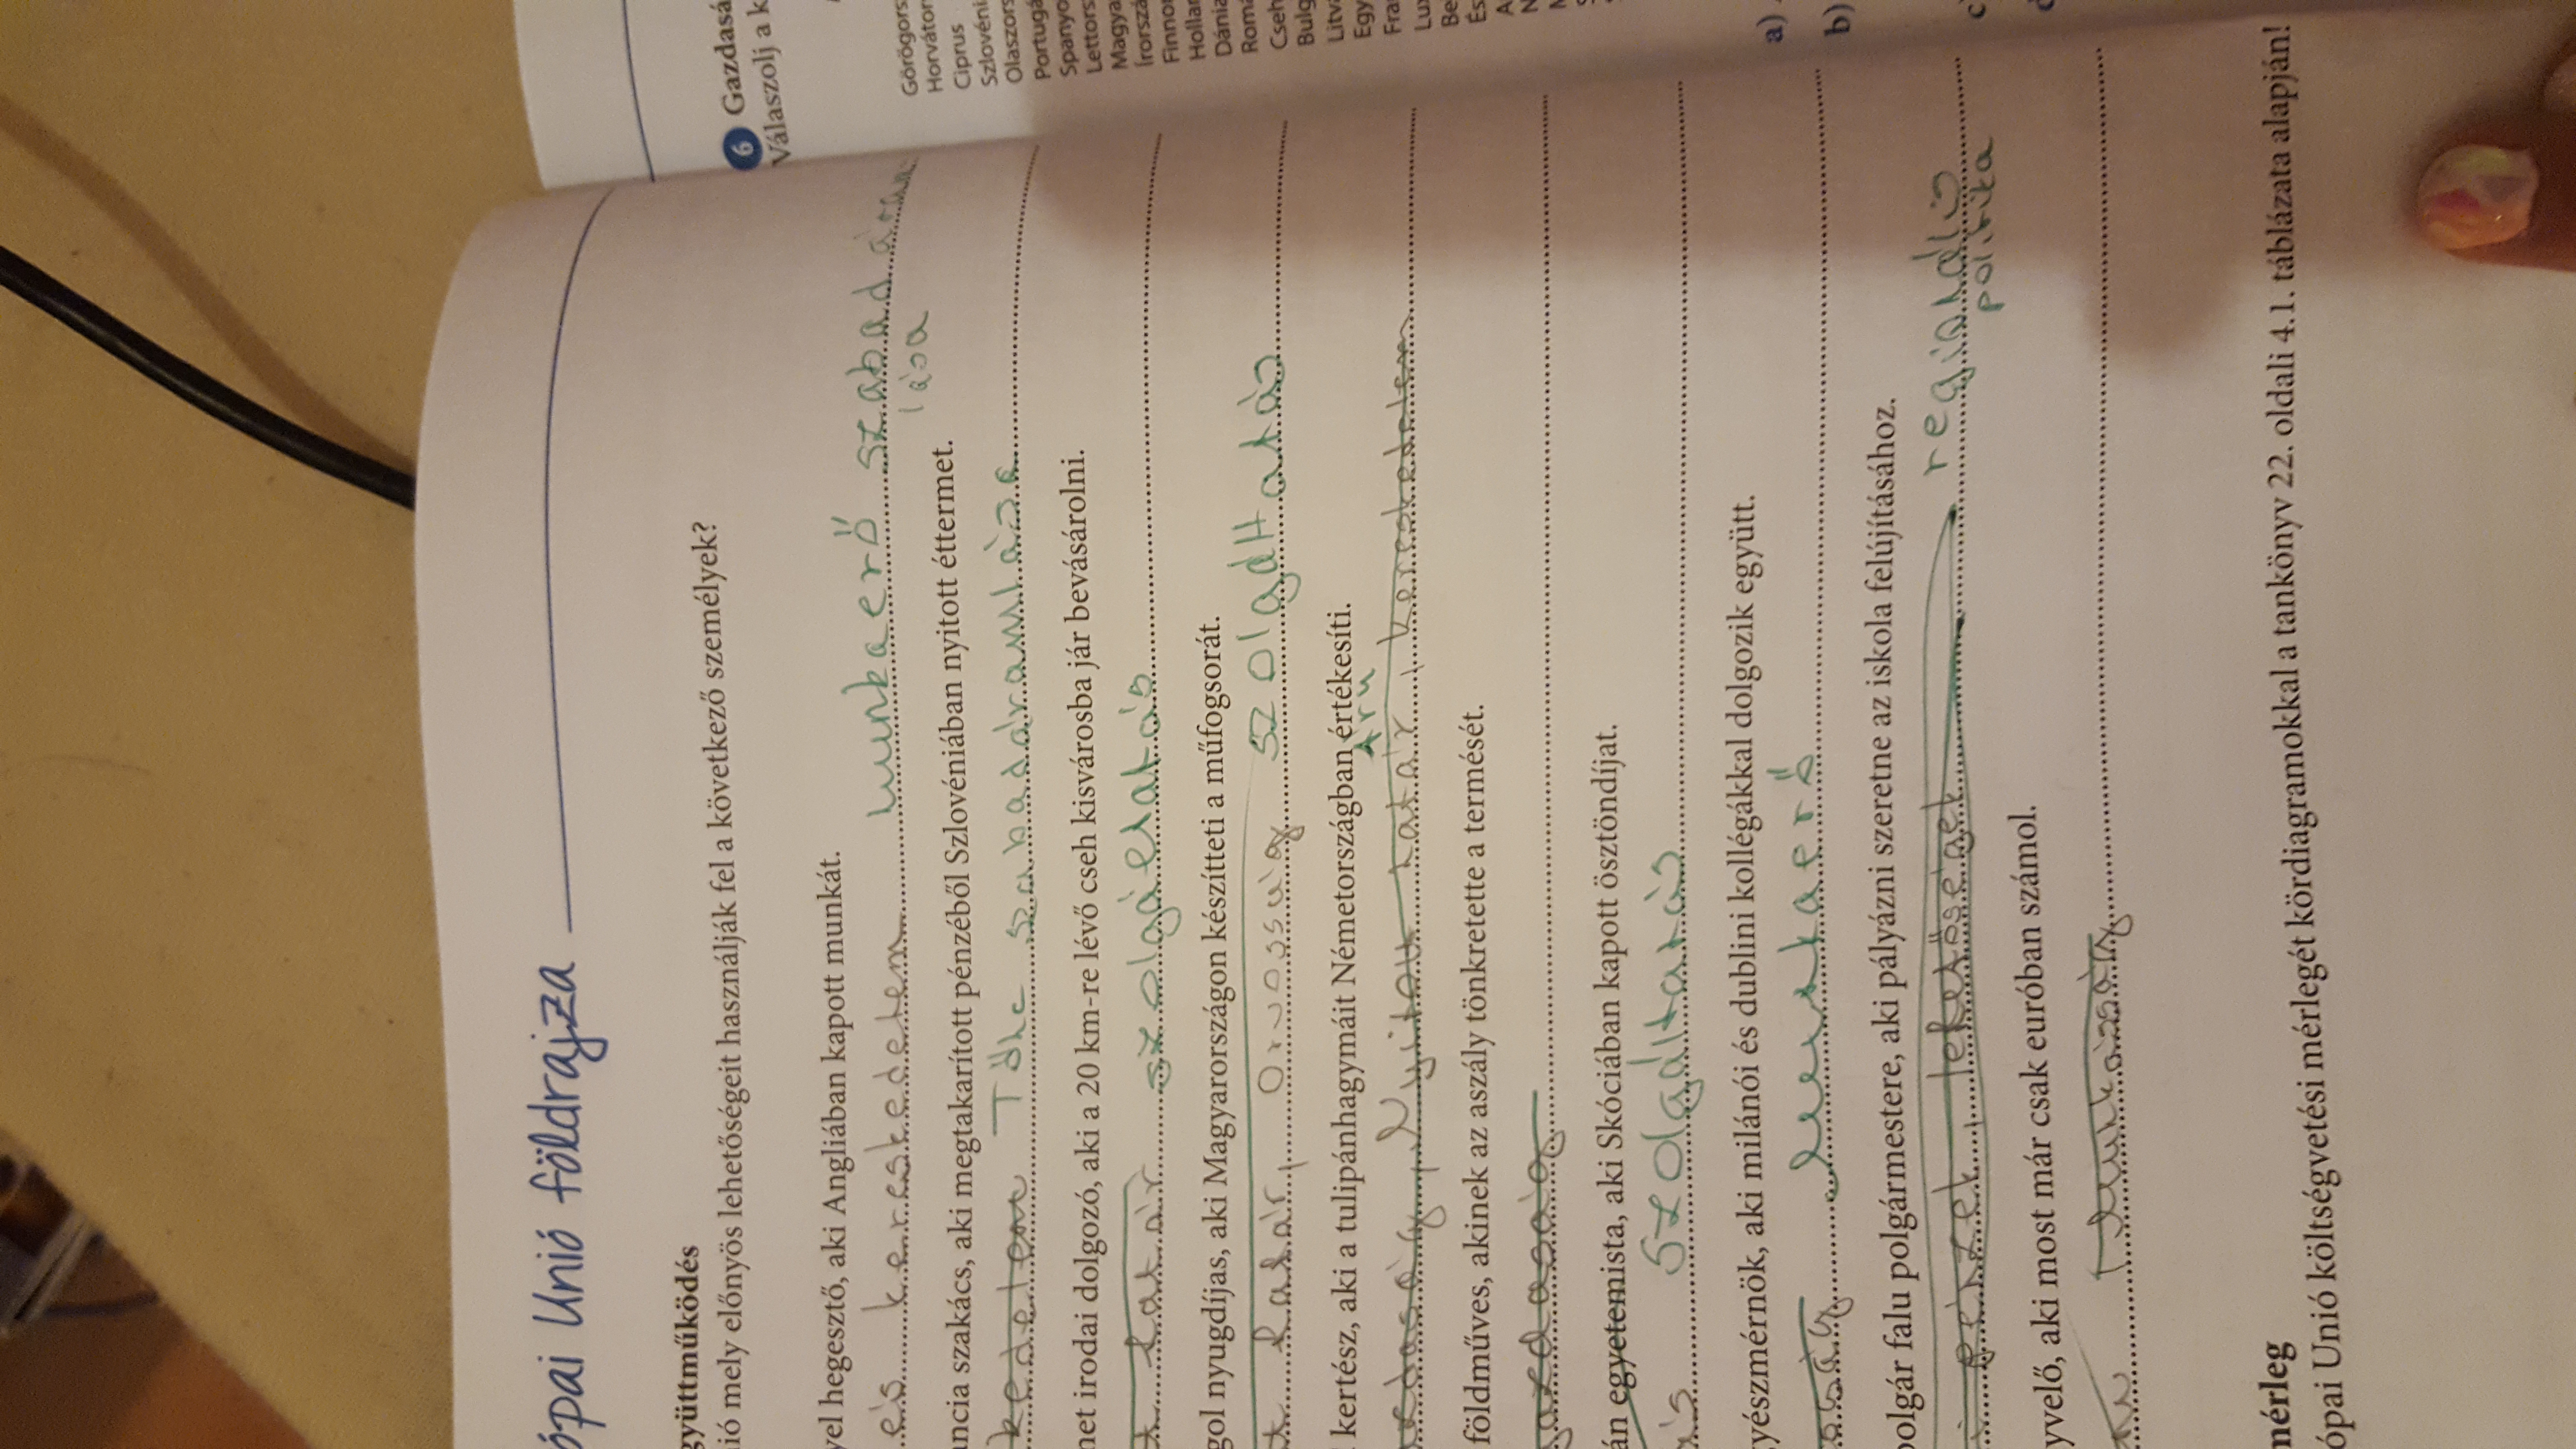 ópai Unió földrajza
gyüttműködés
ió mely előnyös lehetőségeit használják fel a következő személyek?
yel hegesztő, aki Angliában kapott munkát.
és kereskedelem munkaerő szabad áram
lása
ncia szakács, aki megtakarított pénzéből Szlovéniában nyitott éttermet.
kedelem Tőke szabadáramlása
net irodai dolgozó, aki a 20 km-re lévő cseh kisvárosba jár bevásárolni.
t határ szolgáltatás
gol nyugdíjas, aki Magyarországon készítteti a műfogsorát.
t határ, orvosság szolgáltatás
kertész, aki a tulipánhagymáit Németországban értékesíti.
Áru
zdaság, Nyitott határ, kereskedelem
földműves, akinek az aszály tönkretette a termését.
gazdaság
án egyetemista, aki Skóciában kapott ösztöndíjat.
ás szolgáltatás
gyészmérnök, aki milánói és dublini kollégákkal dolgozik együtt.
aság munkaerő
bolgár falu polgármestere, aki pályázni szeretne az iskola felújításához.
pénzek, lehetőségek regionális
politika
yvelő, aki most már csak euróban számol.
mérleg
ópai Unió költségvetési mérlegét kördiagramokkal a tankönyv 22. oldali 4.1. táblázata alapján!
6 Gazdasá
Válaszolj a k
Görögors
Horváton
Ciprus
Szlovéni
Olaszors
Portugá
Spanyo
Lettors
Magya
Írorszá
Finnor
Hollar
Dánia
Romá
Cseh
Bulg
Litva
Egy
Fra
Lux
Be
És
a)
b)